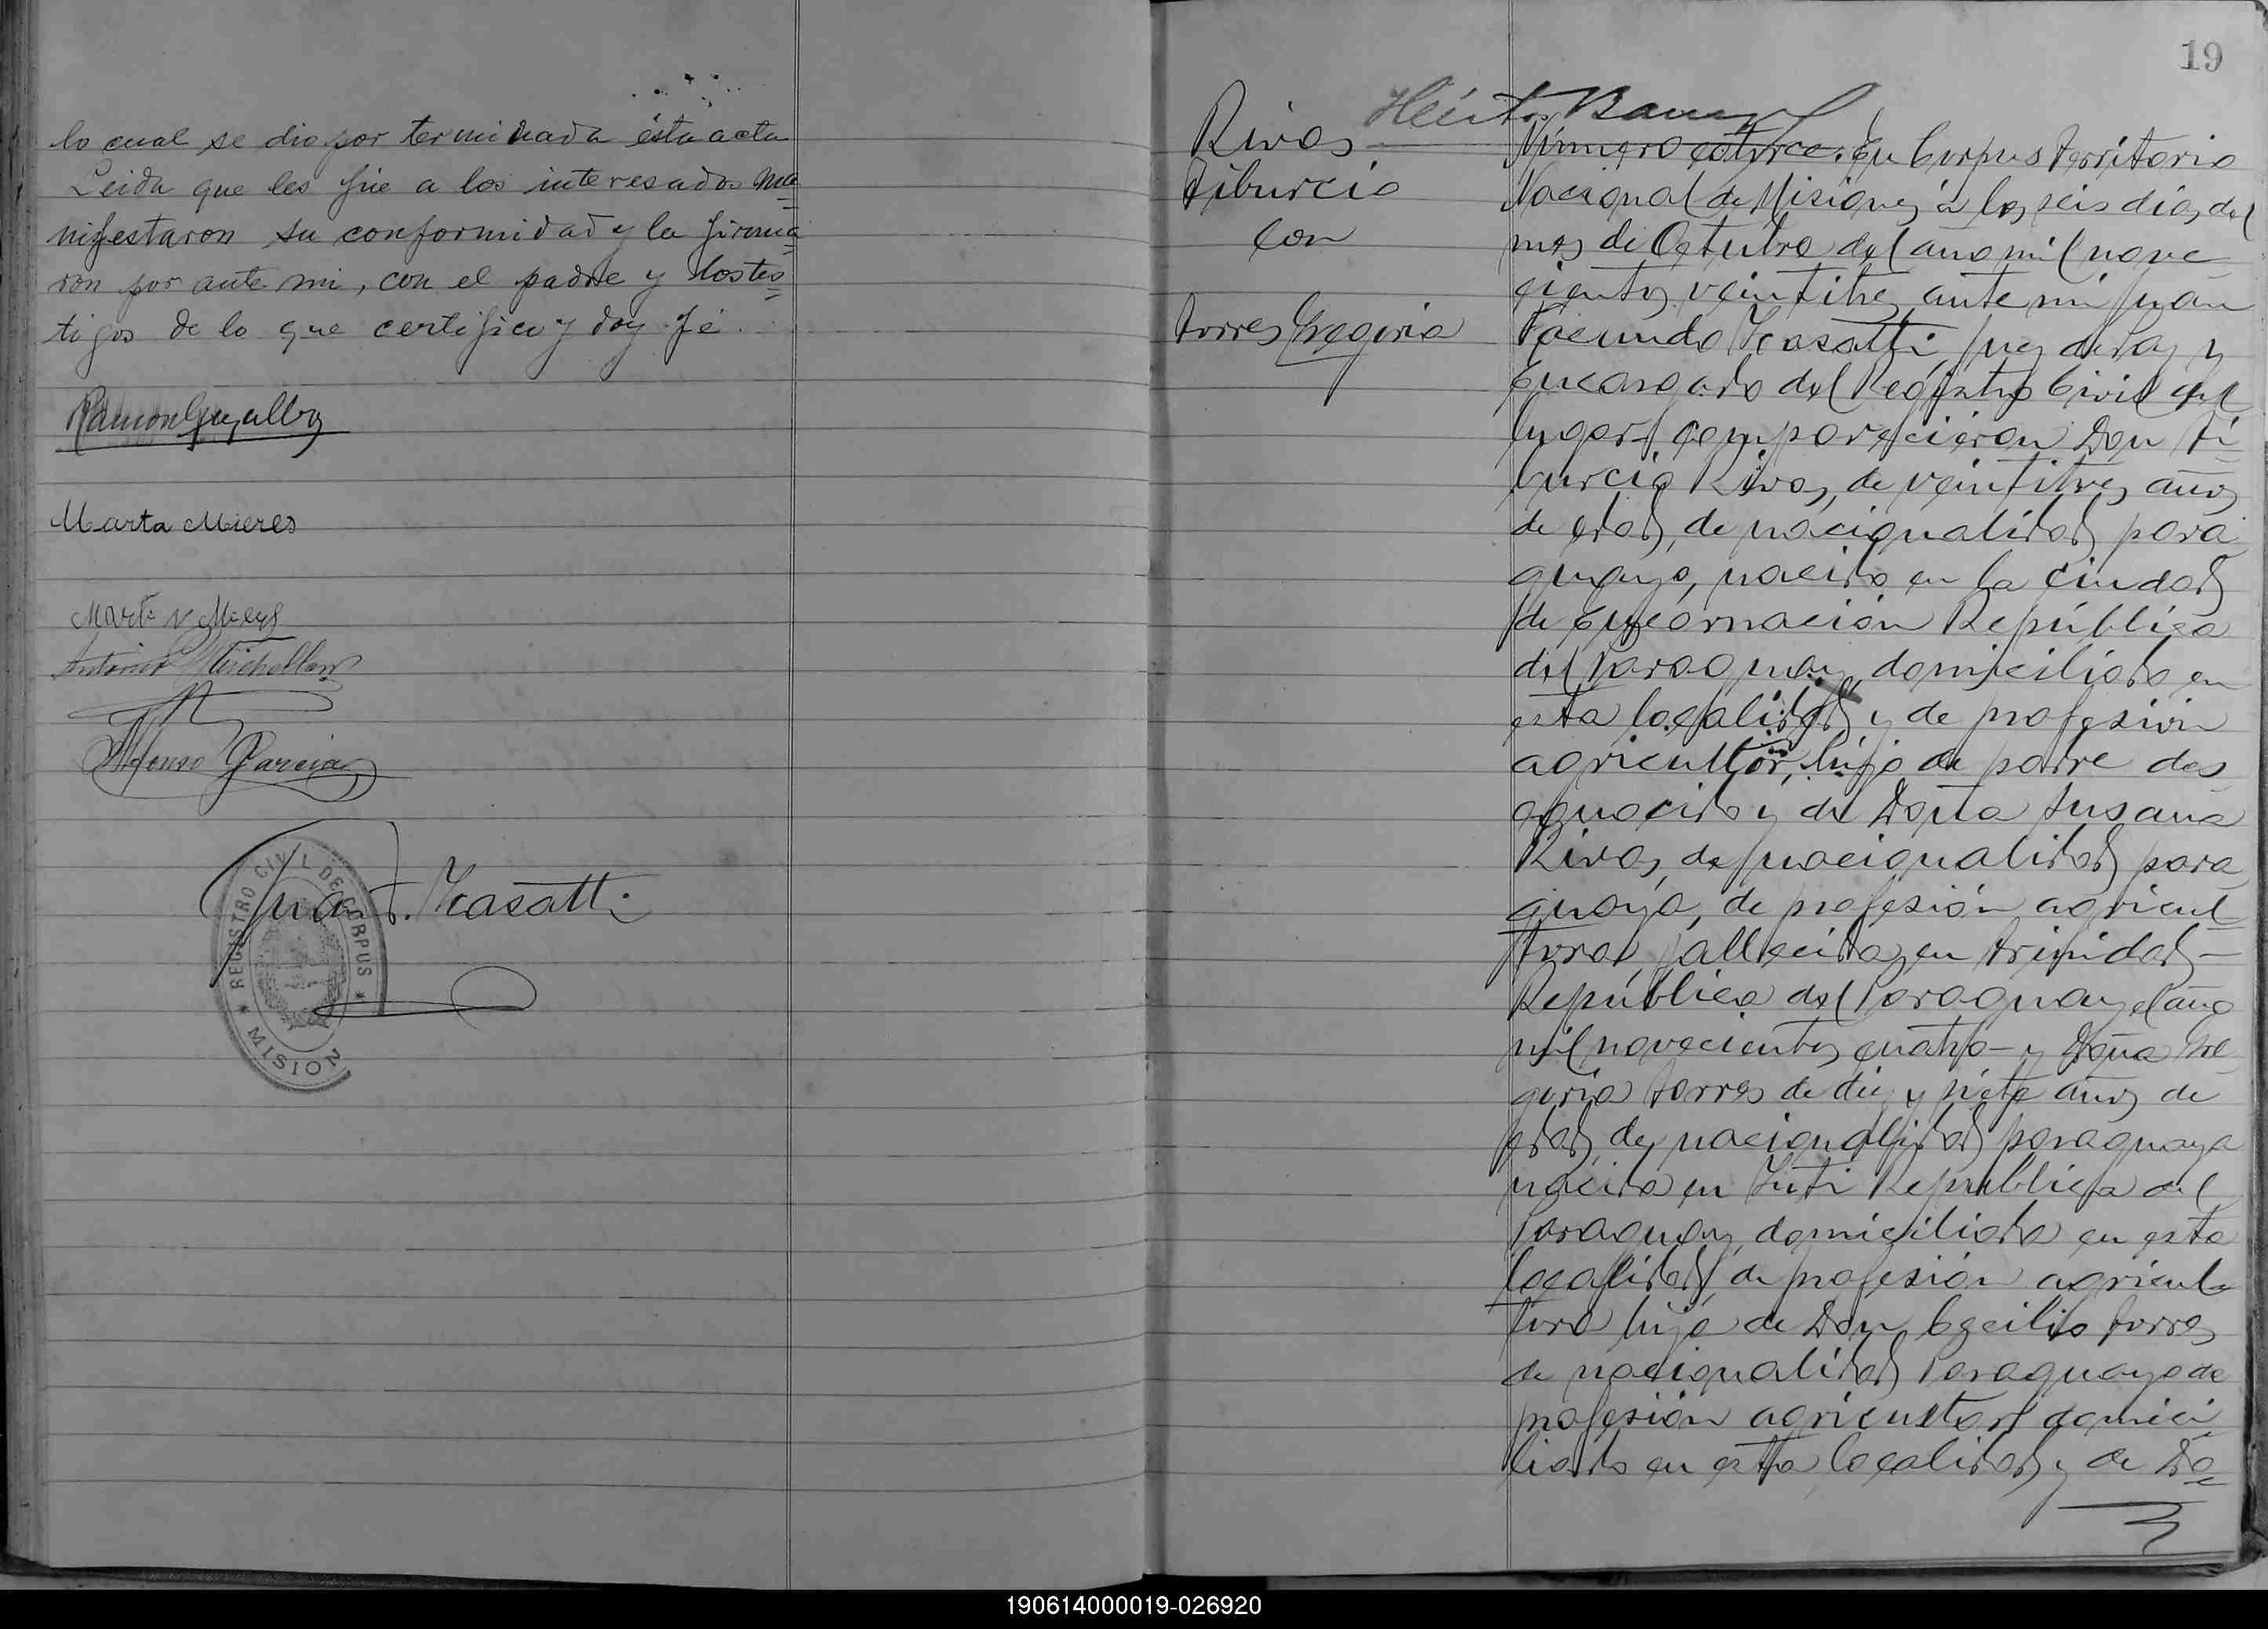 lo cual se dio por terminada ésta acta
Leida que les fue a los interesados ma
nifestaron su conformidad y la firma
ron por ante mi, con el padre y los tes
tigos de lo que certifico y doy fé.
Ramon
Marta Mieres
Antonio
Alfonso Garcia
Juan F. Casatti
REGISTRO CIVIL DE CORPUS
MISION
19
Héctor
Rivas
Tiburcio
con
Torres Gregoria
Número catorce. En Corpus Territorio
Nacional de Misiones á los seis dias del
mes de Octubre del año mil nove
cientos veintitres ante mi Juan
Facundo Casatti Juez de Paz y
Encargado del Registro Civil del
lugar comparecieron Don Ti
burcio Rivas, de veintitres años
de edad, de nacionalidad para
guayo, nacido en la ciudad
de Encarnación República
del Paraguay, domiciliado en
esta localidad y de profesión
agricultor, hijo de padre des
conocido y de Doña Susana
Rivas, de nacionalidad para
guaya, de profesión agricul
tora, fallecida en Trinidad
República del Paraguay el año
mil novecientos cuatro y Doña Gre
goria Torres de diez y siete años de
edad, de nacionalidad paraguaya
nacida en Yuti República del
Paraguay, domiciliada en esta
localidad, de profesión agricul
tora hija de Don Cecilio Torres
de nacionalidad Paraguayo de
profesión agricultor domici
liado en esta localidad y de Do
190614000019-026920